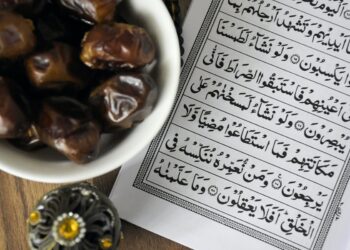 اَلْيَوْمَ
اَيْدِيْهِمْ وَتَشْهَدُ اَرْجُلُهُمْ بِمَا
يَكْسِبُوْنَ ۝ وَلَوْ نَشَآءُ لَطَمَسْنَا
اَعْيُنِهِمْ فَاسْتَبَقُوا الصِّرَاطَ فَاَنّٰى
يُبْصِرُوْنَ ۝ وَلَوْ نَشَآءُ لَمَسَخْنٰهُمْ عَلٰى
مَكَانَتِهِمْ فَمَا اسْتَطَاعُوْا مُضِيًّا وَّلَا
يَرْجِعُوْنَ ۝ وَمَنْ نُّعَمِّرْهُ نُنَكِّسْهُ فِى
الْخَلْقِ ۗ اَفَلَا يَعْقِلُوْنَ ۝ وَمَا عَلَّمْنٰهُ